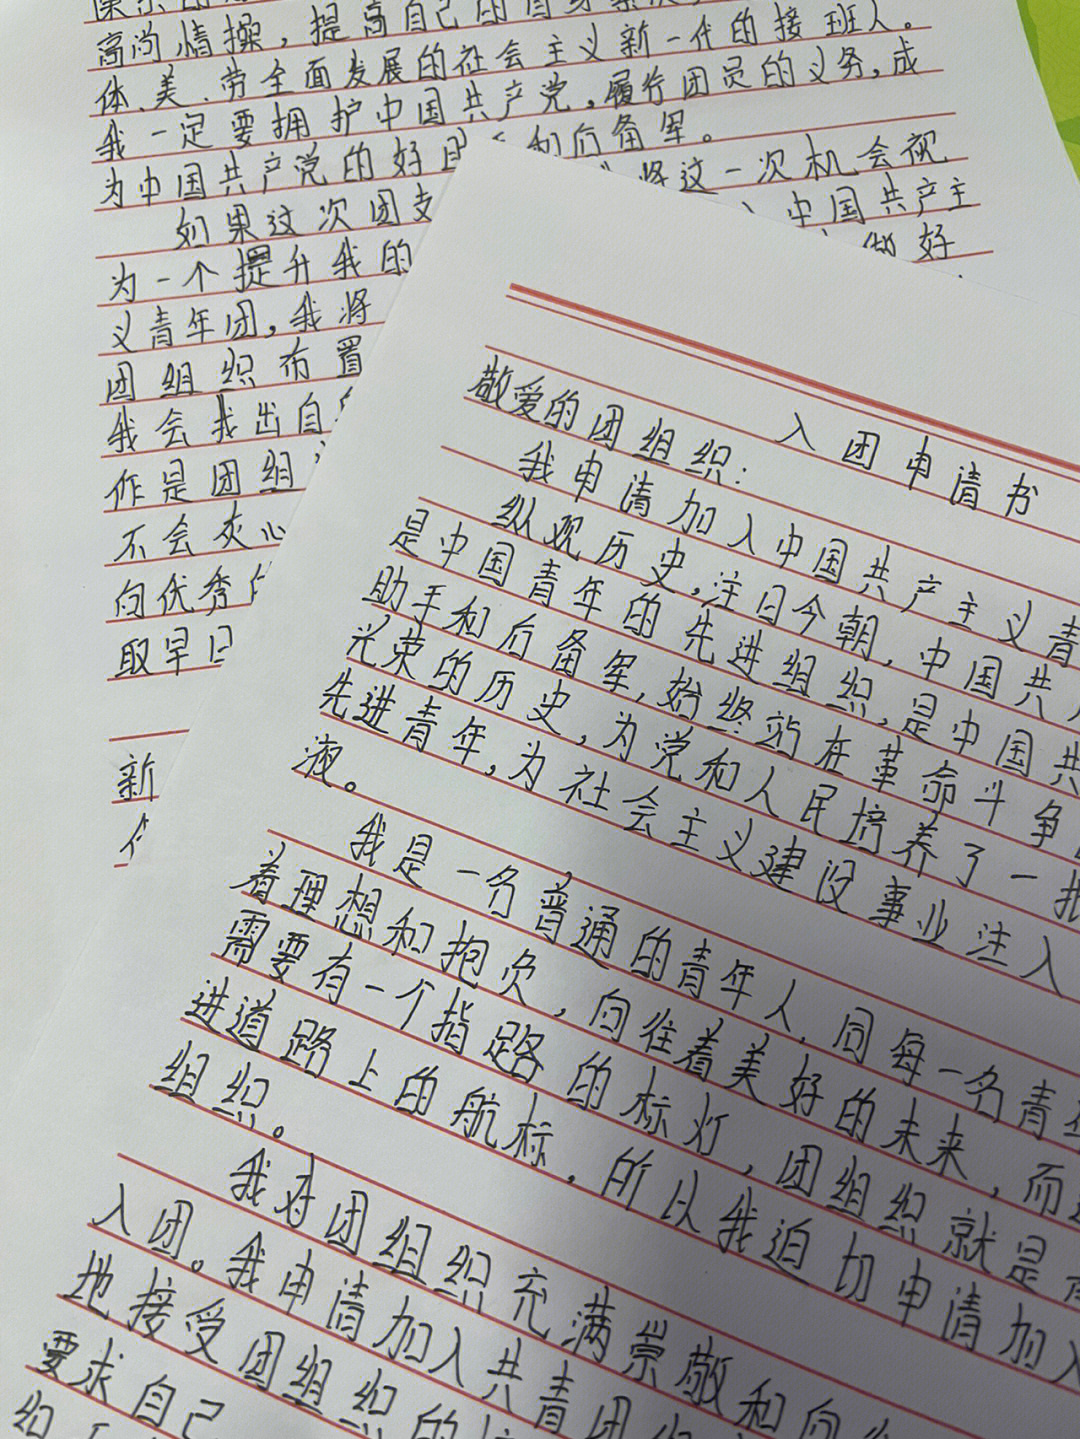 高尚情操，提高自己的自身
体、美、劳全面发展的社会主义新一代的接班人。
我一定要拥护中国共产党，履行团员的义务，成
为中国共产党的好 和后备军。
如果这次团支 将这一次机会视
为一个提升我的 中国共产主
义青年团，我将 做好
团组织布置
我会找出自
作是团组
不会灰心
向优秀
取早日
新
入团申请书
敬爱的团组织：
我申请加入中国共产主义青
纵观历史，注目今朝，中国共
是中国青年的先进组织，是中国共
助手和后备军，始终站在革命斗争
光荣的历史，为党和人民培养了一批
先进青年，为社会主义建设事业注入
液。
我是一名普通的青年人，同每一名青
着理想和抱负，向往着美好的未来，而
需要有一个指路的标灯，团组织就是
进道路上的航标，所以我迫切申请加入
组织。
我对团组织充满崇敬和向
入团。我申请加入共青团
地接受团组织的
要求自己